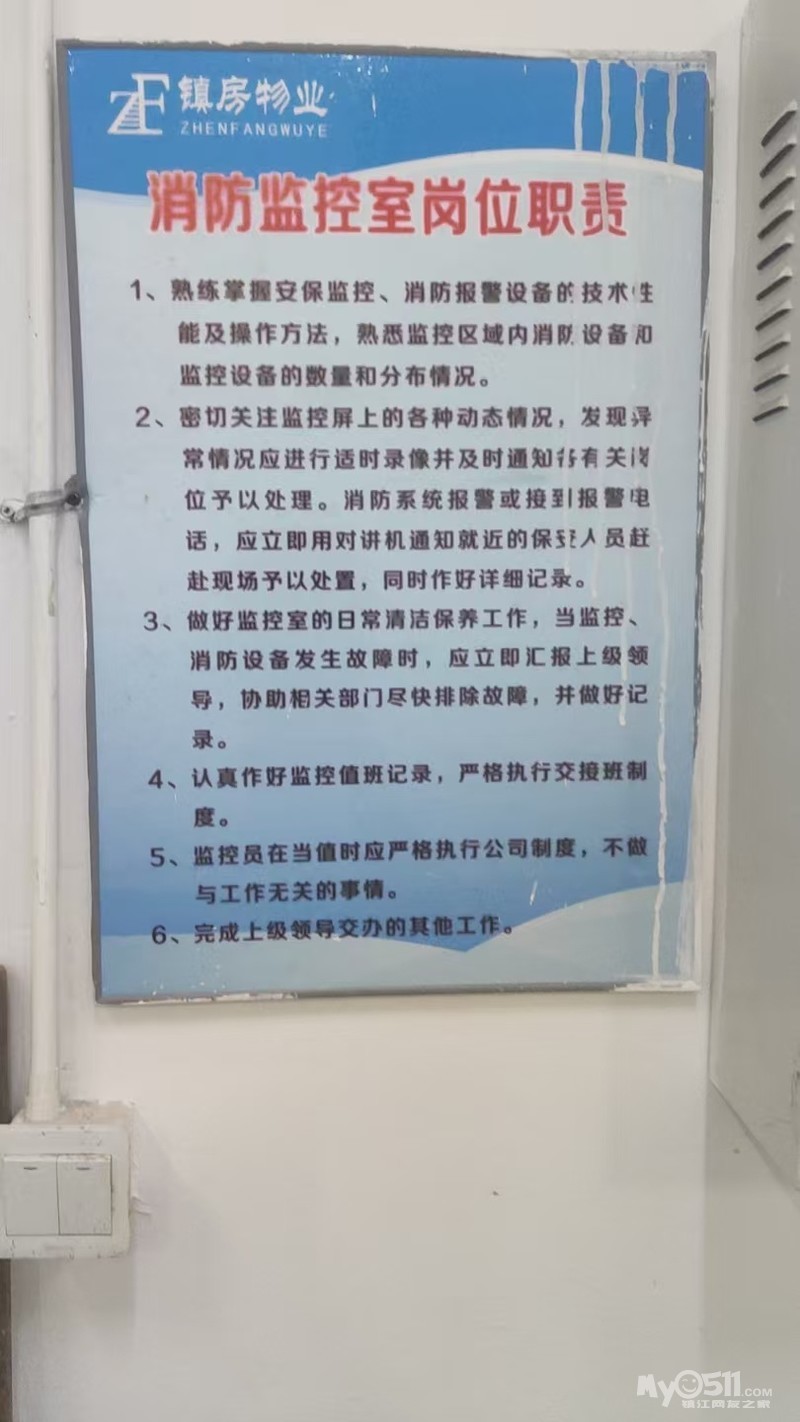 ZF 镇房物业
ZHENFANGWUYE
消防监控室岗位职责
1、熟练掌握安保监控、消防报警设备的技术性
能及操作方法，熟悉监控区域内消防设备和
监控设备的数量和分布情况。
2、密切关注监控屏上的各种动态情况，发现异
常情况应进行适时录像并及时通知各有关岗
位予以处理。消防系统报警或接到报警电
话，应立即用对讲机通知就近的保安人员赶
赴现场予以处置，同时作好详细记录。
3、做好监控室的日常清洁保养工作，当监控、
消防设备发生故障时，应立即汇报上级领
导，协助相关部门尽快排除故障，并做好记
录。
4、认真作好监控值班记录，严格执行交接班制
度。
5、监控员在当值时应严格执行公司制度，不做
与工作无关的事情。
6、完成上级领导交办的其他工作。
My0511.COM
镇江网友之家